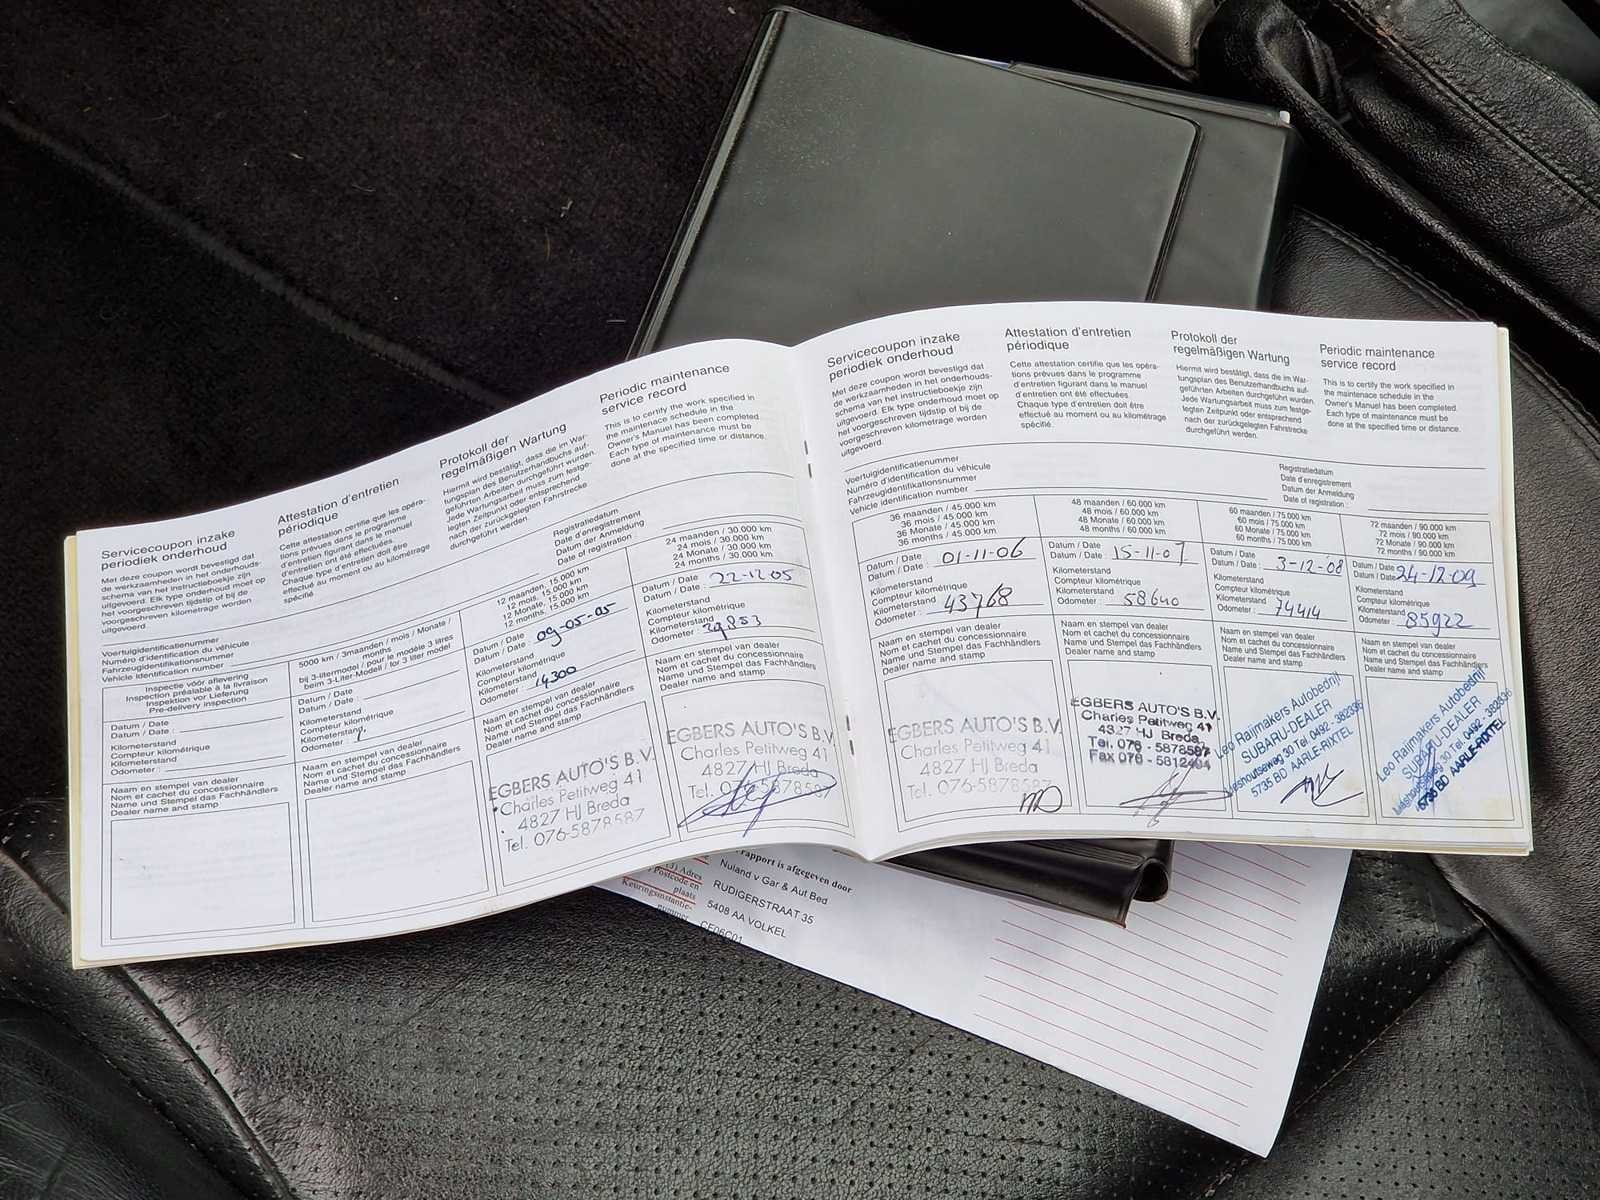 Servicecoupon inzake
periodiek onderhoud
Met deze coupon wordt bevestigd dat
de werkzaamheden in het onderhouds-
schema van het instructieboekje zijn
uitgevoerd. Elk type onderhoud moet op
het voorgeschreven tijdstip of bij de
voorgeschreven kilometrage worden
uitgevoerd.
Attestation d'entretien
périodique
Cette attestation certifie que les opéra-
tions prévues dans le programme
d'entretien figurant dans le manuel
d'entretien ont été effectuées.
Chaque type d'entretien doit être
effectué au moment ou au kilométrage
spécifié.
Protokoll der
regelmäßigen Wartung
Hiermit wird bestätigt, dass die im War-
tungsplan des Benutzerhandbuchs auf-
geführten Arbeiten durchgeführt wurden.
Jede Wartungsarbeit muss zum festge-
legten Zeitpunkt oder entsprechend
nach der zurückgelegten Fahrstrecke
durchgeführt werden.
Periodic maintenance
service record
This is to certify the work specified in
the maintenace schedule in the
Owner's Manual has been completed.
Each type of maintenance must be
done at the specified time or distance.
Voertuigidentificatienummer
Numéro d'identification du véhicule
Fahrzeugidentifikationsnummer
Vehicle identification number
Registratiedatum
Date d'enregistrement
Datum der Anmeldung
Date of registration :
Inspectie vóór aflevering
Inspection préalable à la livraison
Inspektion vor Lieferung
Pre-delivery inspection
Datum / Date
Datum / Date :
Kilometerstand
Compteur kilométrique
Kilometerstand
Odometer :
Naam en stempel van dealer
Nom et cachet du concessionnaire
Name und Stempel das Fachhändlers
Dealer name and stamp
5000 km / 3maanden / mois / Monate /
months
bij 3-litermodel / pour le modèle 3 litres
beim 3-Liter-Modell / for 3 liter model
Datum / Date
Datum / Date :
Kilometerstand
Compteur kilométrique
Kilometerstand
Odometer :
Naam en stempel van dealer
Nom et cachet du concessionnaire
Name und Stempel das Fachhändlers
Dealer name and stamp
12 maanden, 15.000 km
12 mois, 15.000 km
12 Monate, 15.000 km
12 months, 15.000 km
Datum / Date
Datum / Date : 09-05-05
Kilometerstand
Compteur kilométrique
Kilometerstand
Odometer : 14300
Naam en stempel van dealer
Nom et cachet du concessionnaire
Name und Stempel das Fachhändlers
Dealer name and stamp
EGBERS AUTO'S B.V.
Charles Petitweg 41
4827 HJ Breda
Tel. 076-5878587
24 maanden / 30.000 km
24 mois / 30.000 km
24 Monate / 30.000 km
24 months / 30.000 km
Datum / Date
Datum / Date : 22-12-05
Kilometerstand
Compteur kilométrique
Kilometerstand
Odometer : 29853
Naam en stempel van dealer
Nom et cachet du concessionnaire
Name und Stempel das Fachhändlers
Dealer name and stamp
EGBERS AUTO'S B.V.
Charles Petitweg 41
4827 HJ Breda
Tel. 076-5878587
Servicecoupon inzake
periodiek onderhoud
Met deze coupon wordt bevestigd dat
de werkzaamheden in het onderhouds-
schema van het instructieboekje zijn
uitgevoerd. Elk type onderhoud moet op
het voorgeschreven tijdstip of bij de
voorgeschreven kilometrage worden
uitgevoerd.
Attestation d'entretien
périodique
Cette attestation certifie que les opéra-
tions prévues dans le programme
d'entretien figurant dans le manuel
d'entretien ont été effectuées.
Chaque type d'entretien doit être
effectué au moment ou au kilométrage
spécifié.
Protokoll der
regelmäßigen Wartung
Hiermit wird bestätigt, dass die im War-
tungsplan des Benutzerhandbuchs auf-
geführten Arbeiten durchgeführt wurden.
Jede Wartungsarbeit muss zum festge-
legten Zeitpunkt oder entsprechend
nach der zurückgelegten Fahrstrecke
durchgeführt werden.
Periodic maintenance
service record
This is to certify the work specified in
the maintenace schedule in the
Owner's Manual has been completed.
Each type of maintenance must be
done at the specified time or distance.
Voertuigidentificatienummer
Numéro d'identification du véhicule
Fahrzeugidentifikationsnummer
Vehicle identification number
Registratiedatum
Date d'enregistrement
Datum der Anmeldung
Date of registration :
36 maanden / 45.000 km
36 mois / 45.000 km
36 Monate / 45.000 km
36 months / 45.000 km
Datum / Date
Datum / Date : 01-11-06
Kilometerstand
Compteur kilométrique
Kilometerstand
Odometer : 43768
Naam en stempel van dealer
Nom et cachet du concessionnaire
Name und Stempel das Fachhändlers
Dealer name and stamp
EGBERS AUTO'S B.V.
Charles Petitweg 41
4827 HJ Breda
Tel. 076-5878587
48 maanden / 60.000 km
48 mois / 60.000 km
48 Monate / 60.000 km
48 months / 60.000 km
Datum / Date
Datum / Date : 15-11-07
Kilometerstand
Compteur kilométrique
Kilometerstand
Odometer : 58640
Naam en stempel van dealer
Nom et cachet du concessionnaire
Name und Stempel das Fachhändlers
Dealer name and stamp
EGBERS AUTO'S B.V.
Charles Petitweg 41
4827 HJ Breda
Tel. 076 - 5878587
Fax 076 - 5812404
60 maanden / 75.000 km
60 mois / 75.000 km
60 Monate / 75.000 km
60 months / 75.000 km
Datum / Date
Datum / Date : 3-12-08
Kilometerstand
Compteur kilométrique
Kilometerstand
Odometer : 74414
Naam en stempel van dealer
Nom et cachet du concessionnaire
Name und Stempel das Fachhändlers
Dealer name and stamp
Leo Raijmakers Autobedrijf
SUBARU-DEALER
Lieshoutseweg 30 Tel. 0492 - 382336
5735 BD AARLE-RIXTEL
72 maanden / 90.000 km
72 mois / 90.000 km
72 Monate / 90.000 km
72 months / 90.000 km
Datum / Date
Datum / Date : 24-12-09
Kilometerstand
Compteur kilométrique
Kilometerstand
Odometer : 85922
Naam en stempel van dealer
Nom et cachet du concessionnaire
Name und Stempel das Fachhändlers
Dealer name and stamp
Leo Raijmakers Autobedrijf
SUBARU-DEALER
Lieshoutseweg 30 Tel. 0492 - 382336
5735 BD AARLE-RIXTEL
rapport is afgegeven door
Adres
Postcode en
plaats
Keuringsinstantie-
nummer
Nuland v Gar & Aut Bed
RUDIGERSTRAAT 35
5408 AA VOLKEL
CE06C01